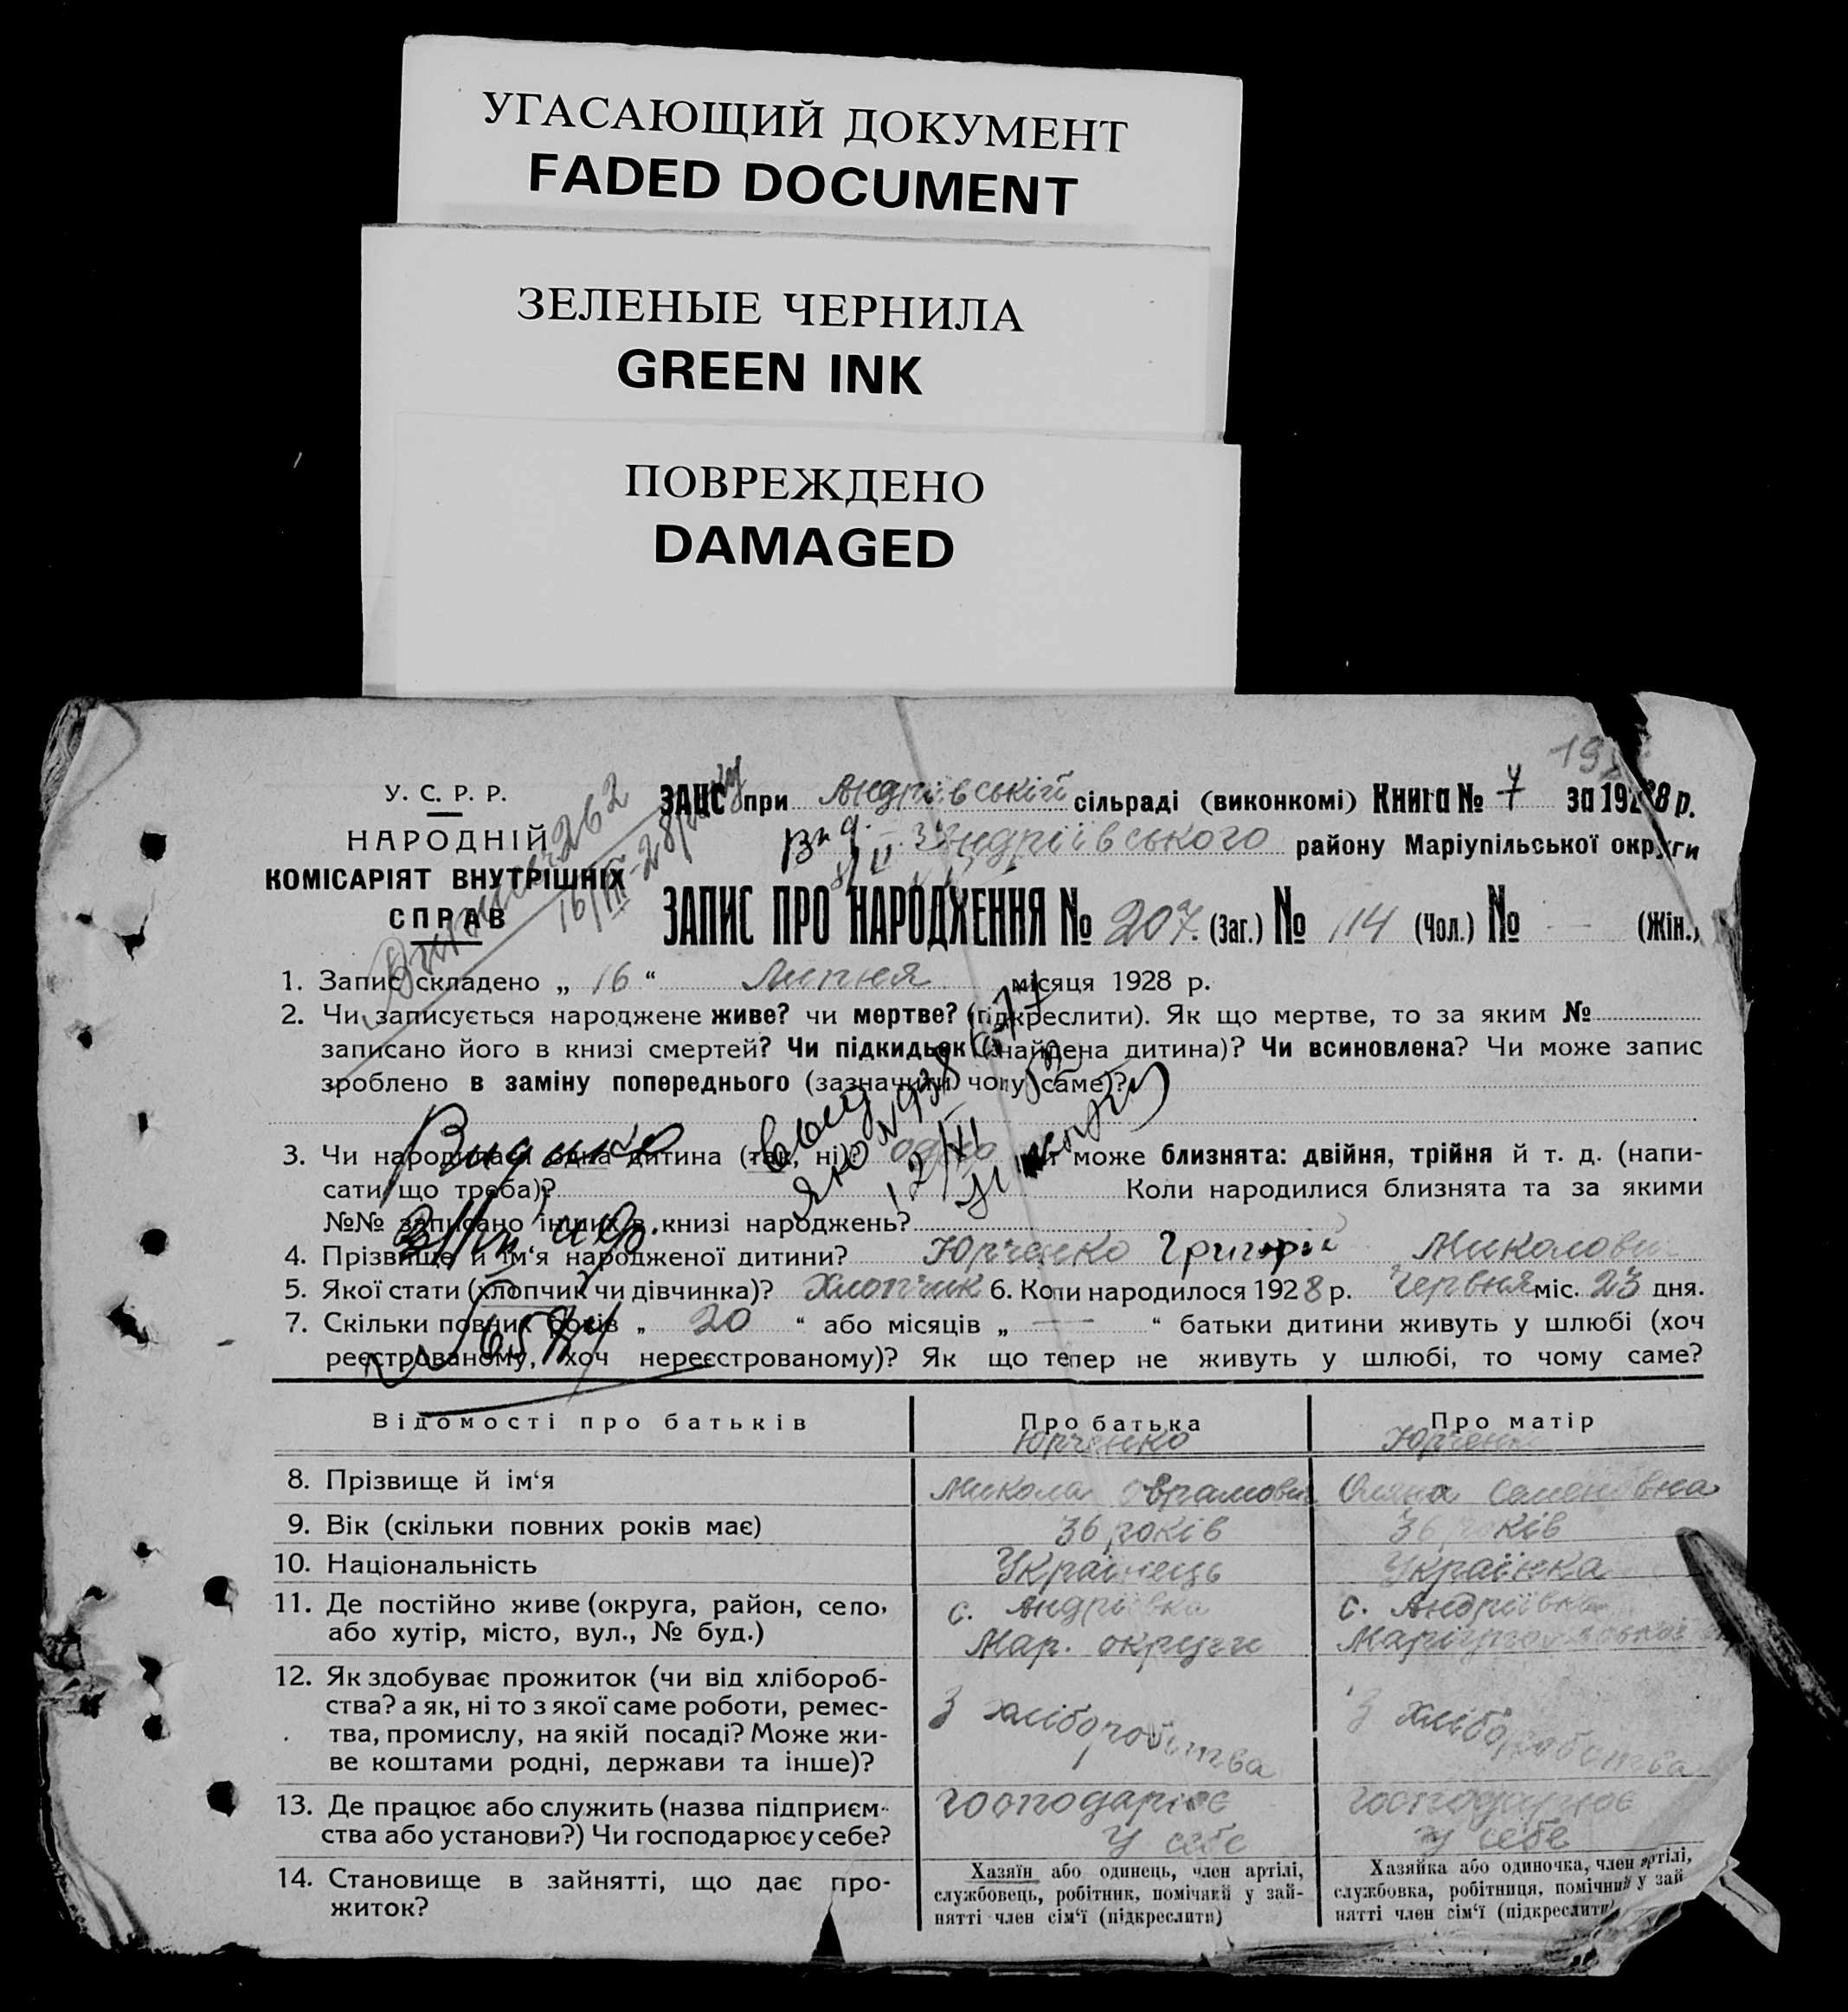 УГАСАЮЩИЙ ДОКУМЕНТ
FADED DOCUMENT
ЗЕЛЕНЫЕ ЧЕРНИЛА
GREEN INK
ПОВРЕЖДЕНО
DAMAGED
У. С. Р. Р.
НАРОДНІЙ
КОМІСАРІЯТ ВНУТРІШНІХ
СПРАВ
262
16/III-28
ЗАЦС при Андріївській сільраді (виконкомі) Книга № 7 за 1928 р.
Андріївського району Маріупільської округи
ЗАПИС ПРО НАРОДЖЕННЯ № 207 (Заг.) № 114 (Чол.) № — (Жін.)
1. Запис складено „ 16 “ Липня місяця 1928 р.
2. Чи записується народжене живе? чи мертве? (підкреслити). Як що мертве, то за яким №
записано його в книзі смертей? Чи підкидьок (знайдена дитина)? Чи всиновлена? Чи може запис
зроблено в заміну попереднього (зазначити чому саме)?
3. Чи народилася одна дитина (так, ні)? одно чи може близнята: двійня, трійня й т. д. (напи-
сати що треба)? Коли народилися близнята та за якими
№№ записано інших в книзі народжень?
4. Прізвище й ім‘я народженої дитини? Юрченко Григорій Миколович
5. Якої стати (хлопчик чи дівчинка)? Хлопчик 6. Коли народилося 1928 р. Червня міс. 23 дня.
7. Скільки повних років „ 20 “ або місяців „ — “ батьки дитини живуть у шлюбі (хоч
реєстрованому, хоч нереєстрованому)? Як що тепер не живуть у шлюбі, то чому саме?
Відомості про батьків
Про батька
Про матір
8. Прізвище й ім‘я
Юрченко
Микола Оврамович
Юрченко
Оляна Семенівна
9. Вік (скільки повних років має)
36 років
36 років
10. Національність
Українець
Українка
11. Де постійно живе (округа, район, село,
або хутір, місто, вул., № буд.)
с. Андріївка
Мар. округи
с. Андріївка
Маріупольської
12. Як здобуває прожиток (чи від хлібороб-
ства? а як, ні то з якої саме роботи, ремес-
тва, промислу, на якій посаді? Може жи-
ве коштами родні, держави та інше)?
З хліборобства
З хліборобства
13. Де працює або служить (назва підприєм-
ства або установи?) Чи господарює у себе?
господарює
у себе
господарює
у себе
14. Становище в зайнятті, що дає про-
житок?
Хазяїн або одинець, член артілі,
службовець, робітник, помічний у зай-
нятті член сім‘ї (підкреслити)
Хазяйка або одиночка, член артілі,
службовка, робітниця, помічний у зай-
нятті член сім‘ї (підкреслити)